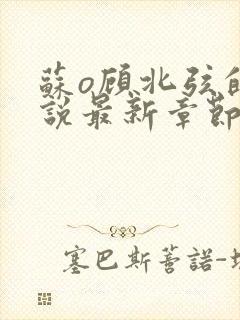 蘇o顾北弦的
說最新章節
塞巴斯蒂諾-塊